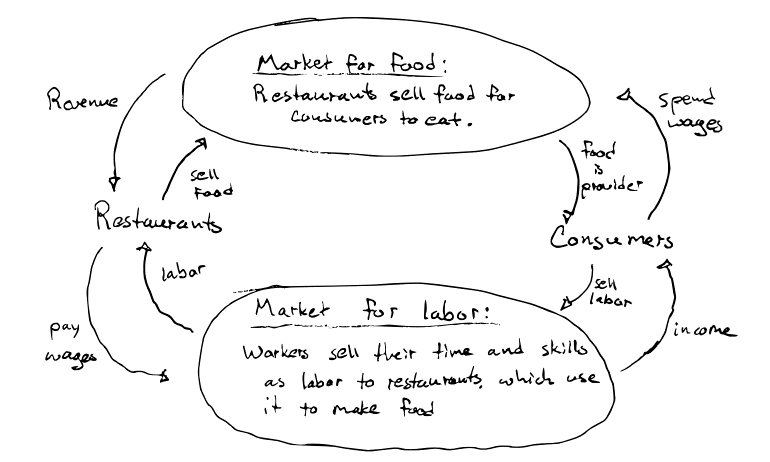 Market for food:
Restaurants sell food for
consumers to eat.
Revenue
spend
wages
sell
food
food
is
provider
Restaurants
Consumers
labor
sell
labor
Market for labor:
Workers sell their time and skills
as labor to restaurants, which use
it to make food
pay
wages
income